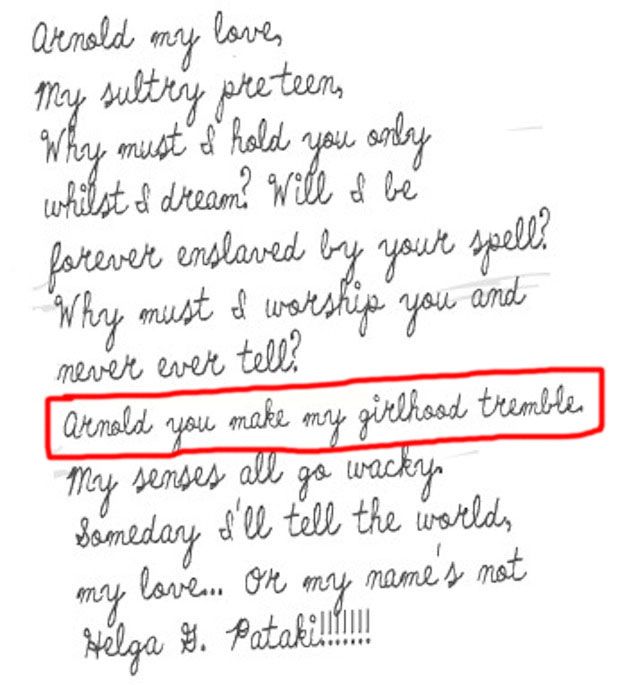 Arnold my love,
My sultry preteen,
Why must I hold you only
whilst I dream? Will I be
forever enslaved by your spell?
Why must I worship you and
never ever tell?
Arnold you make my girlhood tremble.
My senses all go wacky.
Someday I'll tell the world,
my love... Or my name's not
Helga G. Pataki!!!!!!!